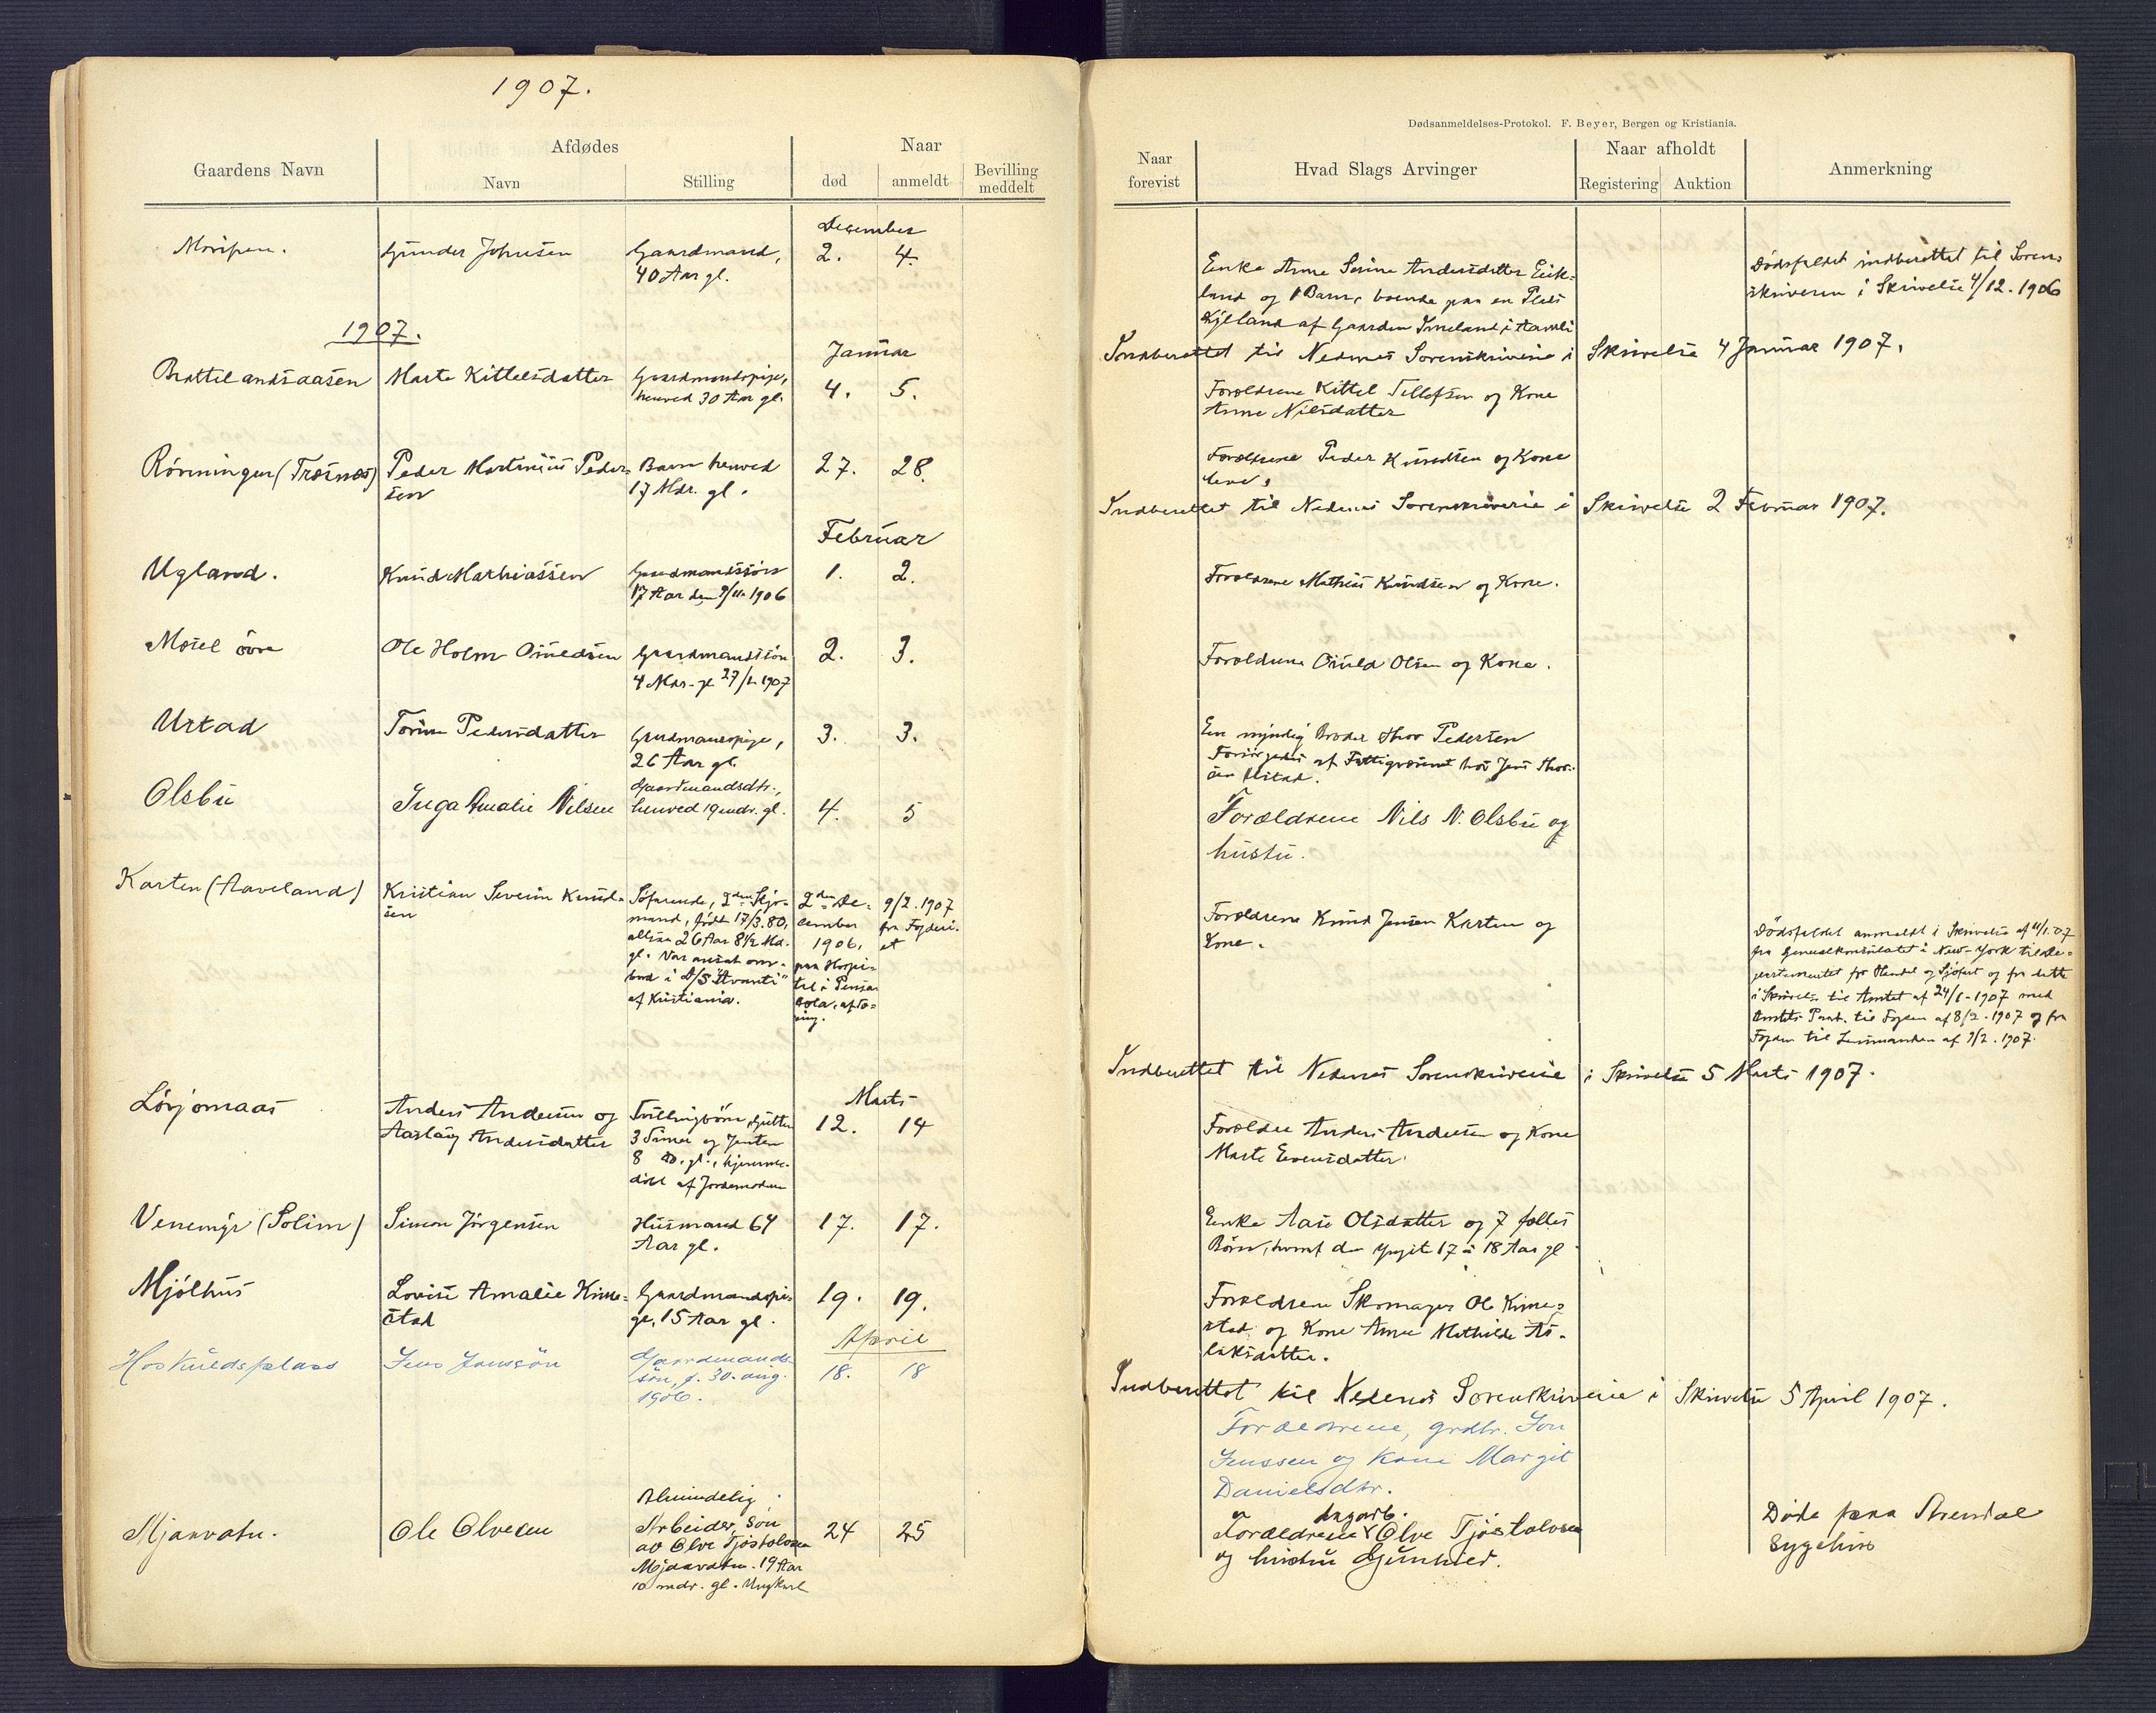 1907.
Afdødes
Naar
Gaardens Navn
Navn
Stilling
død
anmeldt
Bevilling
meddelt
December
Gunder Johnsen
Gaardmand,
2.
4.
40 Aar gl.
1907.
Januar
Brattelandsaasen
Marte Kittelsdatter
Gaardmandspige,
henved 30 Aar gl.
4.
5.
Rönningen (Træsnæs)
Peder Martinius Peder-
sen
Barn henved
17 Mdr. gl.
27.
28.
Februar
Ugland.
Knud Mathiassen
Gaardmandssön
17 Aar den 9/11 1906
1.
2.
Mösel övre
Ole Holm Osuldsen
Gaardmandssön
4 Mdr. gl 27/1 1907
2.
3.
Urstad
Torine Pedersdatter
Gaardmandspige,
26 Aar gl.
3.
3.
Olsbu
Inga Amalie Nilsen
Gaardmandsdtr.,
henved 19 mdr. gl.
4.
5
Karten (Aaveland)
Kristian Severin Knud-
sen
Söfarende, 2den Stjr-
mand, født 17/3. 80,
altsaa 26 Aar 8½ Md.
gl. Var ansat om-
bord i D/S "Avanti"
af Kristiania.
2den De-
cember
1906,
paa Hospi-
tal i Pensa
cola,
9/2. 1907
fra Fogderi-
et
Marts
Lövjomaas
Anders Andersen og
Aaslaug Andersdatter
Tvillingbörn, Gutten
3 Timer og Jenten
8 gl., hjemme-
döbt af Jordemoderen
12.
14
Venemyr (Solim)
Simon Jörgensen
Husmand 64
Aar gl.
17.
17.
Mjölhus
Lovise Amalie Kime-
stad
Gaardmandspi-
ge, 15 Aar gl.
19.
19.
April
Hoskuldsplass
Jens Jonssön
Gaardmands-
sön, f. 30. aug.
1906.
18.
18
Mjaavatn.
Ole Olvesen
Almindelig
Arbeider, sön
av Olve Tjöstolvsen
Mjaavatn. 19 Aar
10 mdr. gl. Ungkarl
24
25
Dødsanmeldelses-Protokol. F. Beyer, Bergen og Kristiania.
Naar
forevist
Hvad Slags Arvinger
Naar afholdt
Registering
Auktion
Anmerkning
Enke Anne Serine Andersdatter Eik-
land og 1 Barn, boende paa en Plads
Kjlland af Gaarden Smeland i Aamli
Dödsfaldet indberettet til Soren-
skriveren i Skrivelse 4/12. 1906
Indberettet til Nedenes Sorenskriverie i Skrivelse 4 Januar 1907.
Forældrene Kittel Tellefsen og Kone
Anne Nilsdatter
Forældrene Peder Knudsen og Kone
leve,
Indberettet til Nedenes Sorenskriverie i Skrivelse 2 Februar 1907.
Forældrene Mathias Knudsen og Kone.
Forældrene Osuld Olsen og Kone.
En myndig Broder Thor Pedersen
Forsörgedes af Fattigvæsenet hos Jens Thor-
sen Ulstad.
Forældrene Nils N. Olsbu og
hustru.
Forældrene Knud Jensen Karten og
Kone.
Dödsfaldet anmeldt i Skrivelse af 11/1. 07
fra Generalkonsulatet i New-York til De-
partementet for Handel og Sjöfart og fra dette
i Skrivelse til Amtet af 24/1-1907 med
Amtets Paat. til Fogden af 8/2. 1907 og fra
Fogden til Lensmanden af 9/2. 1907.
Indberettet til Nedenes Sorenskriverie i Skrivelse 5 Marts 1907.
Forældre Anders Andersen og Kone
Marte Evensdatter
Enke Aase Olsdatter og 7 fælles
Börn, hvoraf den yngste 17 à 18 Aar gl
Forældrene Skomager Ole Kime-
stad og Kone Anne Mathilde As-
laksdatter.
Indberettet til Nedenes Sorenskriverie i Skrivelse 5 April 1907.
Forældrene, grdbr. Jon
Jenssen og kone Margit
Danielsdtr.
dagarb.
Forældrene Olve Tjöstolvsen
og hustru Gunhild.
Döde paa Arendal
Sygehus